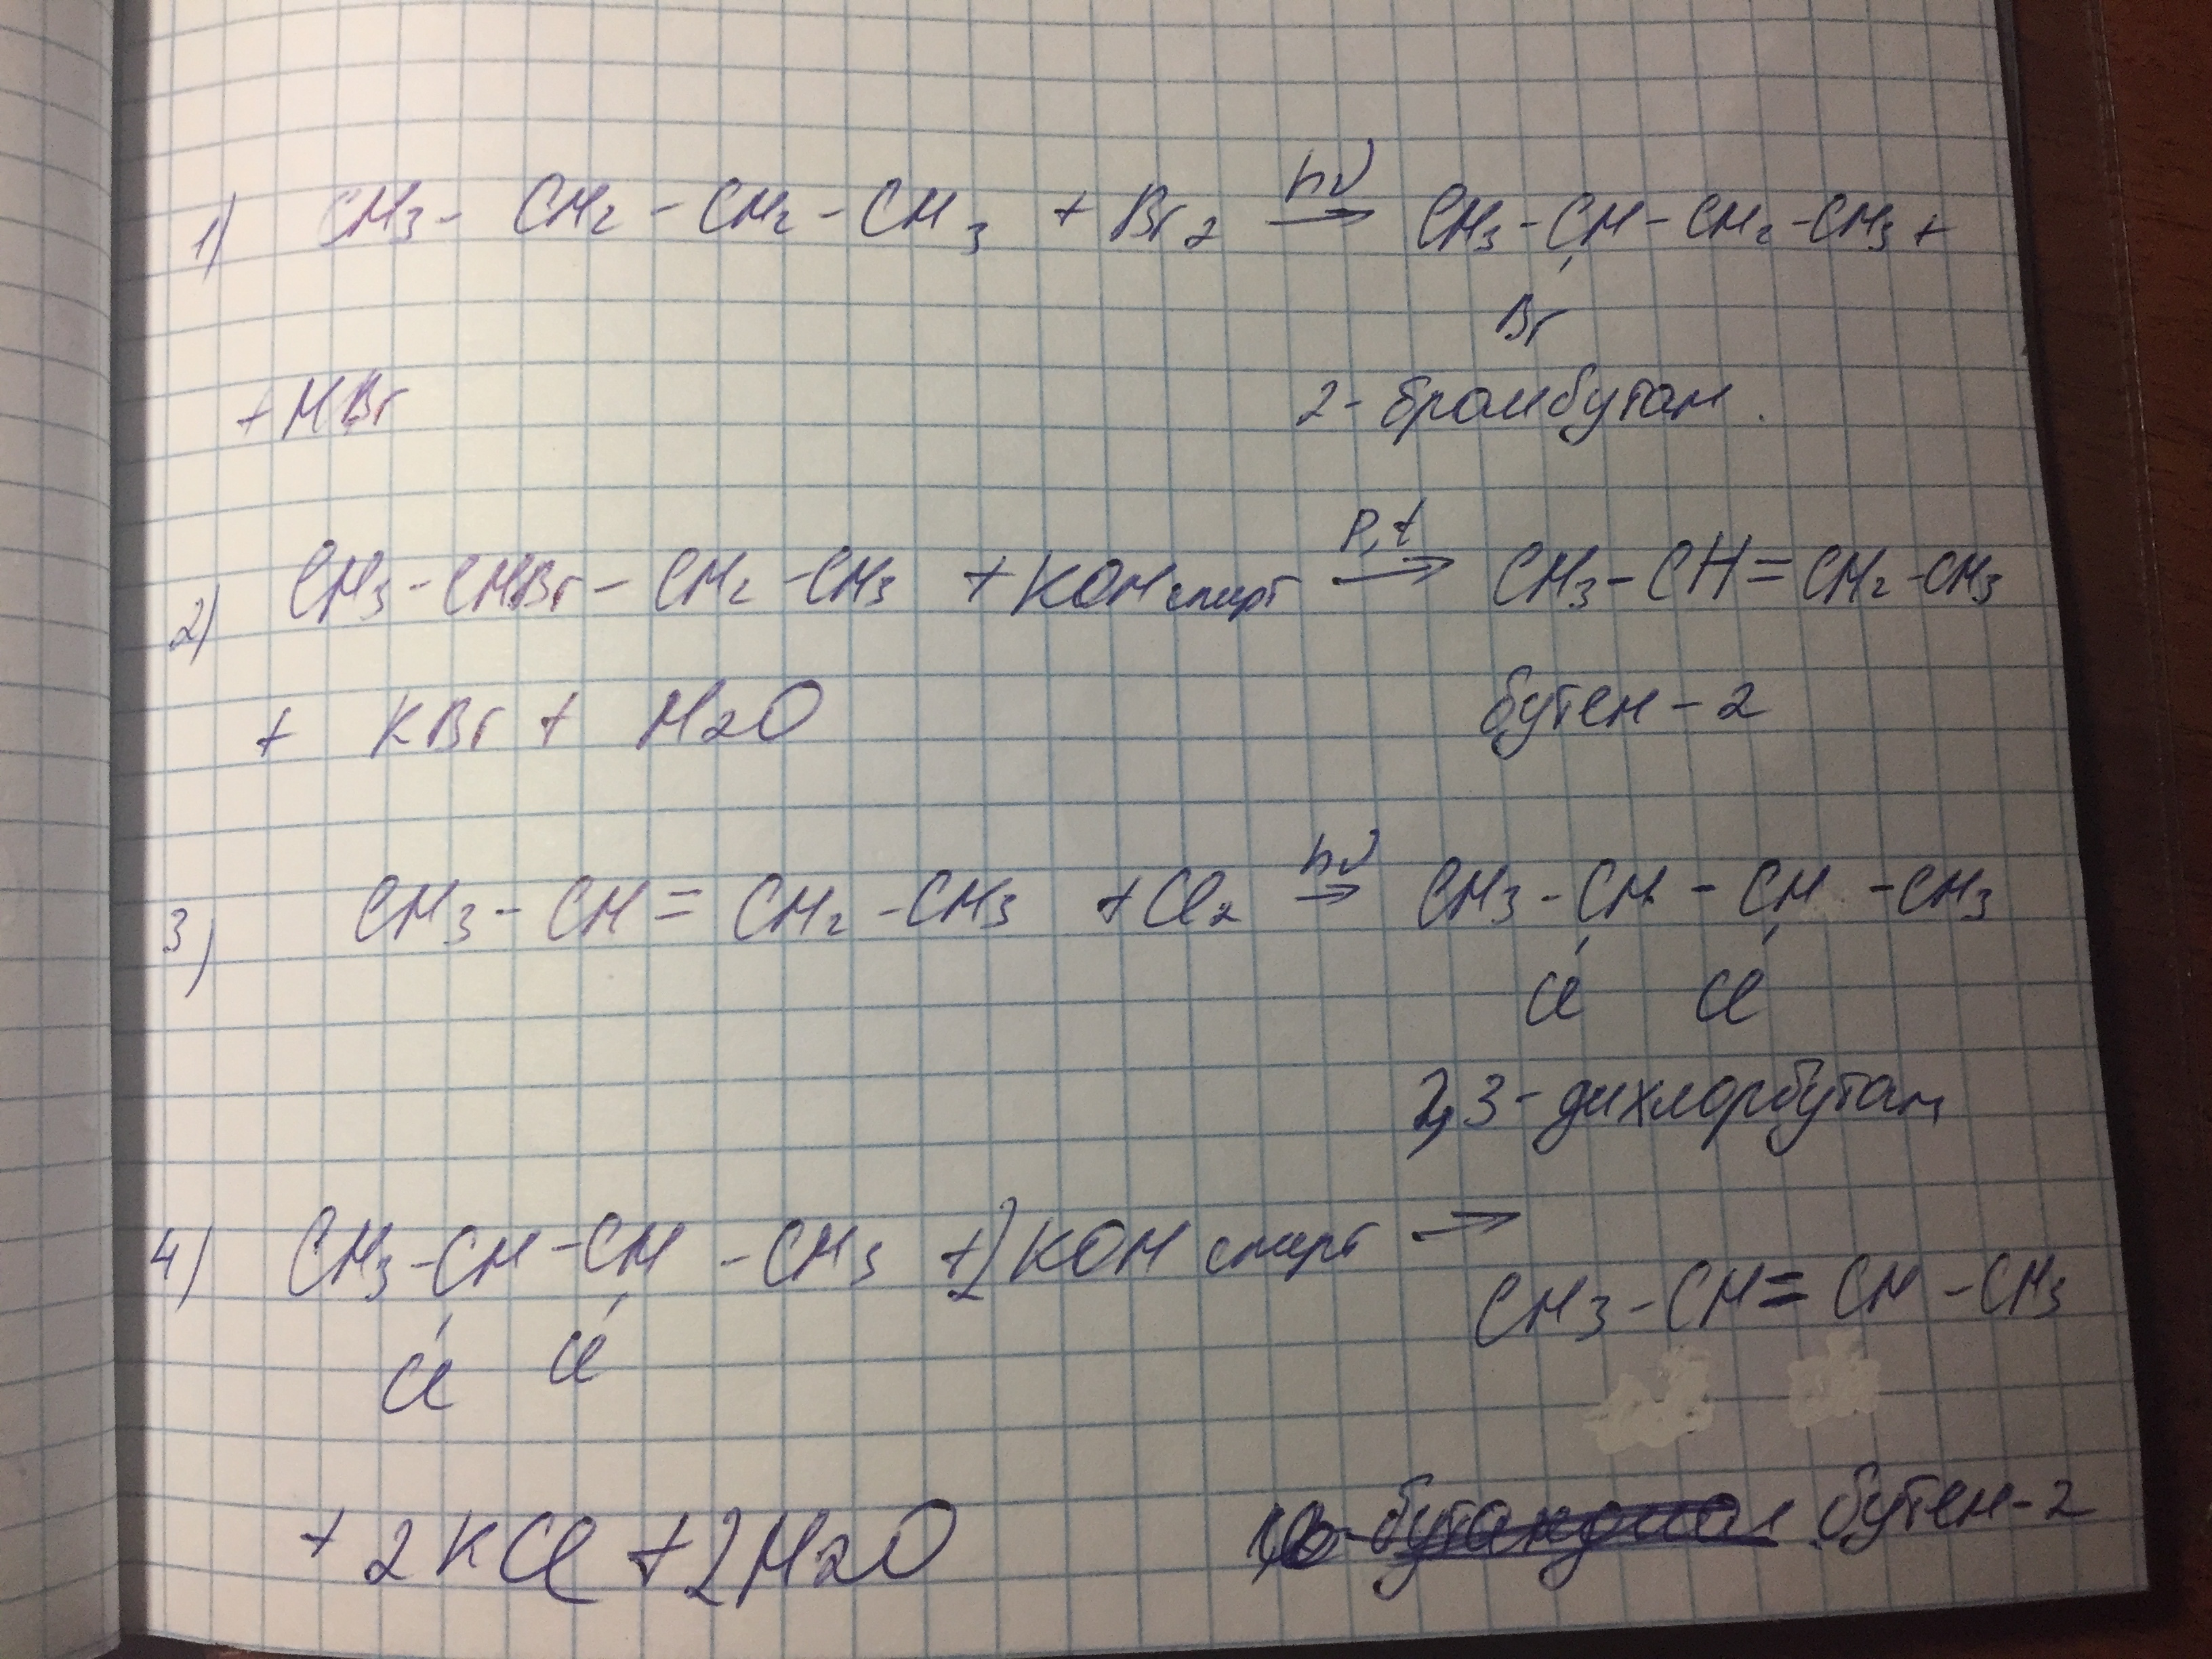 1) CH3 - CH2 - CH2 - CH3 + Br2 hν → CH3 - CH - CH2 - CH3 +
Br
+ HBr 2-бромбутан.
2) CH3 - CHBr - CH2 - CH3 + KOH спирт P, t → CH3 - CH = CH2 - CH3
+ KBr + H2O бутен-2
3) CH3 - CH = CH2 - CH3 + Cl2 hν → CH3 - CH - CH - CH3
Cl Cl
2,3-дихлорбутан
4) CH3 - CH - CH - CH3 + 2KOH спирт →
CH3 - CH = CH - CH3
Cl Cl
+ 2KCl + 2H2O бутен-2